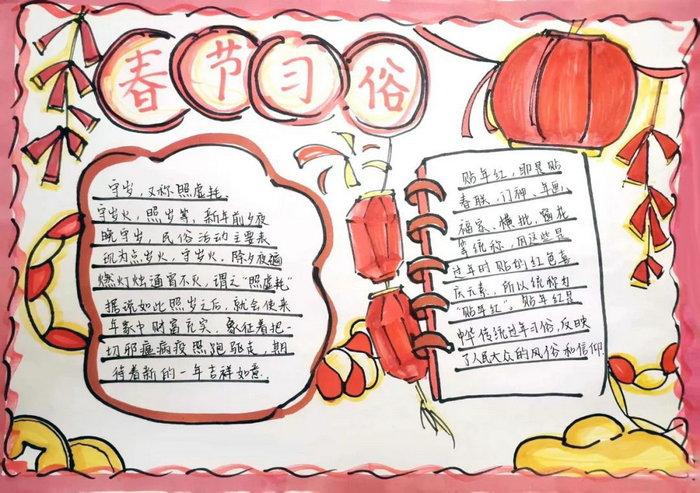 春节习俗
守岁,又称照虚耗
守岁火,照岁等,新年前夕夜
晚守岁,民俗活动主要表
现为点岁火,守岁火,除夕夜遍
燃灯烛通宵不灭,谓之"照虚耗"
据说如此照岁之后,就会使来
年家中财富充实,象征着把一
切邪瘟病疫照跑驱走,期
待着新的一年吉祥如意.
贴年红,即是贴
春联、门神、年画,
福字、横批、窗花
等统称,因这些是
过年时贴的红色喜
庆元素,所以统称为
"贴年红"。贴年红是
中华传统过年习俗,反映
了人民大众的风俗和信仰.